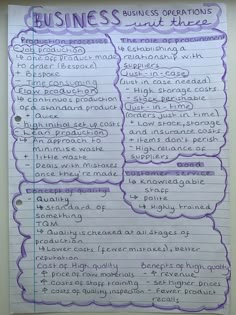 BUSINESS BUSINESS OPERATIONS
unit three
Production processes
Job production
↳ one off product made
to order (Bespoke)
+ Bespoke
- Time consuming
Flow production
↳ continuous production
of a standard product
+ Quick
- high initial set up costs
Lean production
↳ An approach to
minimise waste
+ little waste
- Deals with mistakes
once they're made
The role of procurement
↳ Establishing a
relationship with
suppliers
Just-in-case
(just in case needed)
- High storage costs
- Stock perishable
Just-in-time
(orders just in time)
+ Low stock, storage
and insurance costs
+ items don't perish
- High reliance of
suppliers
Good
customer service
↳ Knowledgable
staff
↳ polite
↳ Highly trained
Concept of quality
• Quality
↳ Standard of
something
TQM
↳ Quality is cheaked at all stages of
production
↳ Lower costs (fewer mistakes), better
reputation
Costs of High quality
↑ price of raw materials
↑ Costs of staff training
↑ costs of quality inspection
Benefits of high quality
- ↑ revenue
- Set higher prices
- Fewer product
recalls